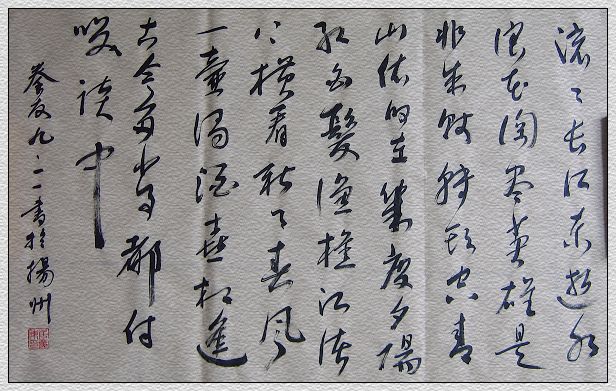 滚〻长江东逝水
浪花淘尽英雄是
非成败转头空青
山依旧在几度夕陽
红白髮渔樵江渚
上惯看秋月春风
一壶浊酒喜相逢
古今多少事都付
笑谈中
九.二一書於揚州